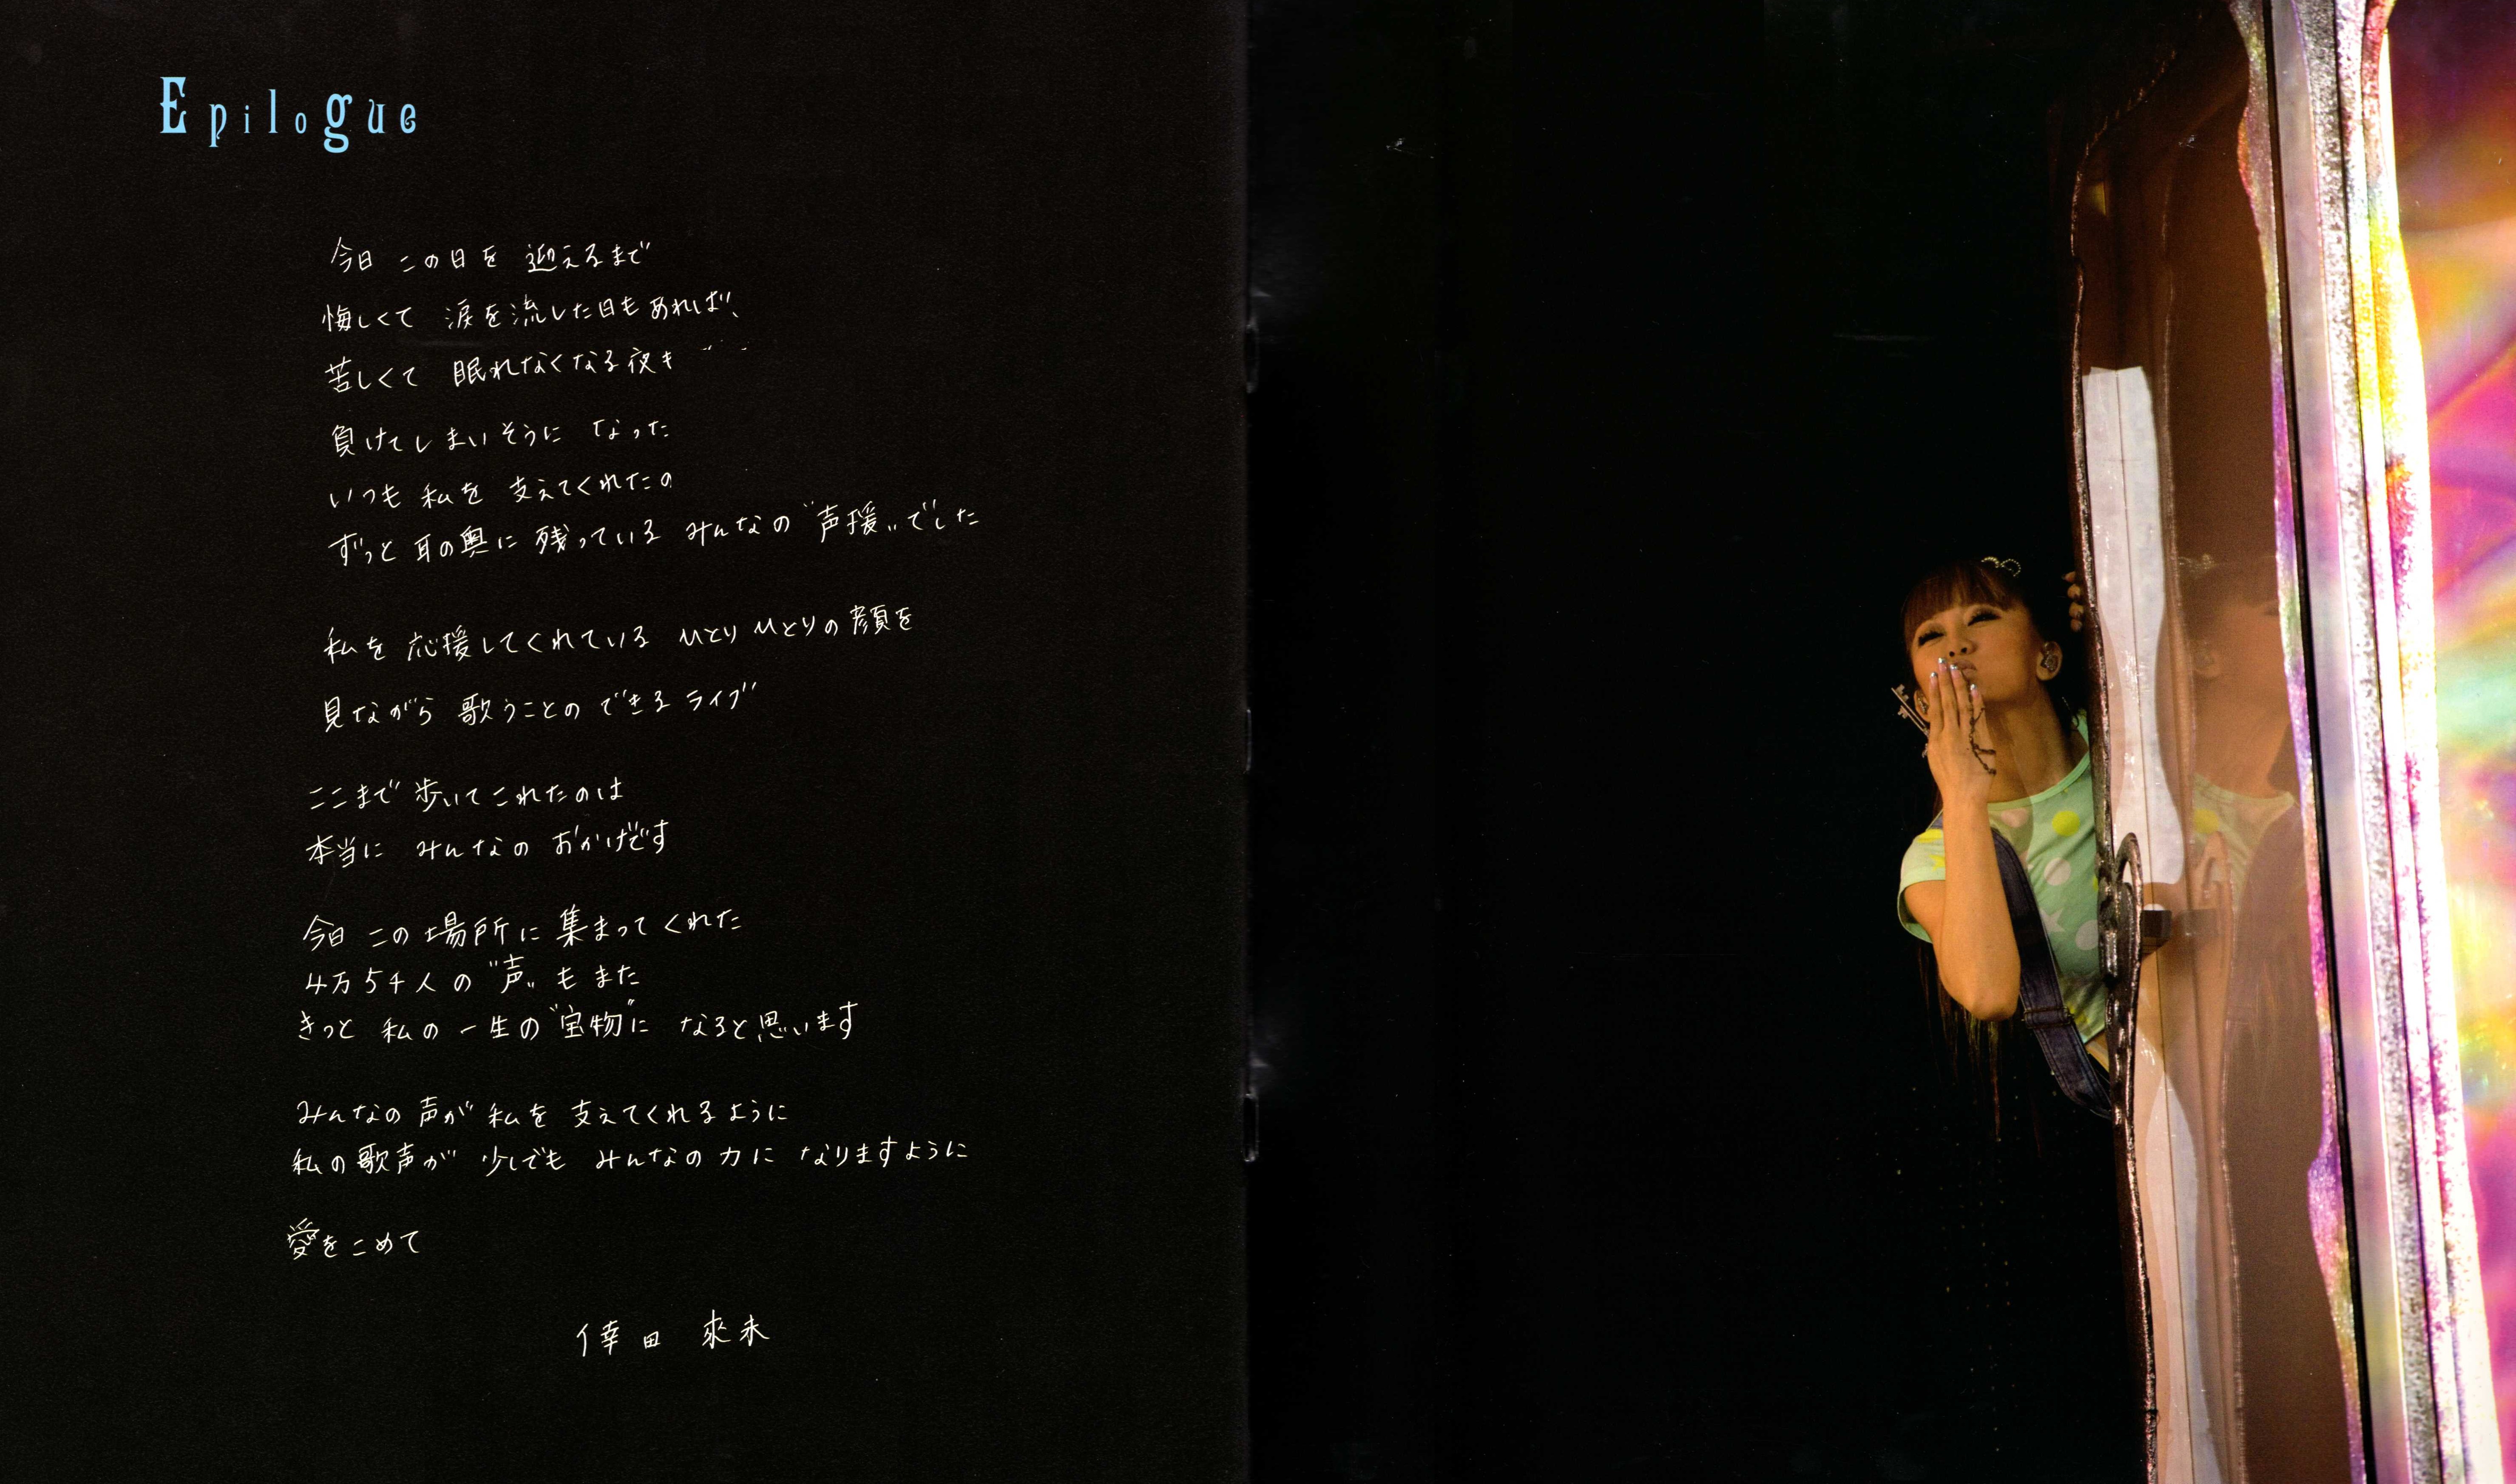 Epilogue
今日 この日を 迎えるまで
悔しくて 涙を流した日もあれば、
苦しくて 眠れなくなる夜も
負けてしまいそうに なった
いつも 私を 支えてくれたの
ずっと 耳の奥に 残っている みんなの〝声援〟でした
私を 応援してくれている ひとりひとりの顔を
見ながら 歌うことの できる ライブ
ここまで 歩いてこれたのは
本当に みんなの おかげです
今日 この場所に 集まってくれた
4万5千人の〝声〟もまた
きっと 私の 一生の〝宝物〟に なると思います
みんなの 声が 私を 支えてくれるように
私の歌声が 少しでも みんなの力に なりますように
愛をこめて
倖田 來未